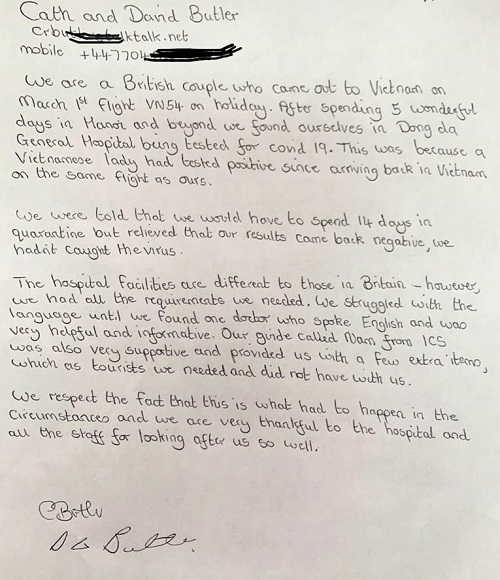 Cath and David Butler
crbu lktalk.net
mobile +447704
We are a British couple who came out to Vietnam on
March 1st flight VN54 on holiday. After spending 5 wonderful
days in Hanoi and beyond we found ourselves in Dong da
General Hospital being tested for covid 19. This was because a
Vietnamese lady had tested positive since arriving back in Vietnam
on the same flight as ours.
We were told that we would have to spend 14 days in
quarantine but relieved that our results came back negative, we
hadn't caught the virus.
The hospital facilities are different to those in Britain – however,
we had all the requirements we needed. We struggled with the
language until we found one doctor who spoke English and was
very helpful and informative. Our guide called Nam from ICS
was also very supportive and provided us with a few extra items,
which as tourists we needed and did not have with us.
We respect the fact that this is what had to happen in the
circumstances and we are very thankful to the hospital and
all the staff for looking after us so well.
CButler
D Butler.